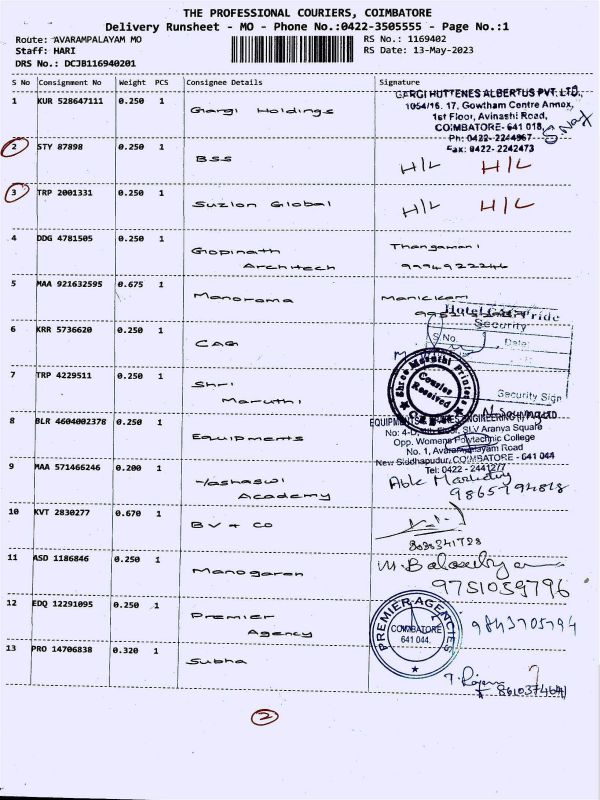 THE PROFESSIONAL COURIERS, COIMBATORE
Delivery Runsheet - MO - Phone No.:0422-3505555 - Page No.:1
Route: AVARAMPALAYAM MO
RS No.: 1169402
Staff: HARI
RS Date: 13-May-2023
DRS No.: DCJB116940201
S No Consignment No Weight PCS Consignee Details Signature
1 KUR 528647111 0.250 1 Giargi Holdings
GARGI HUTTENES ALBERTUS PVT. LTD.,
1054/16. 17, Gowtham Centre Annex,
1st Floor, Avinashi Road,
COIMBATORE- 641 018,
Ph: 0422- 2244967
Fax: 0422- 2242473
2 STY 87898 0.250 1 BSS H/L H/L
3 TRP 2001331 0.250 1 Suzlon Global H/L H/L
4 DDG 4781505 0.250 1 Gopinath Thangamani
Architech 9994922246
5 MAA 921632595 0.675 1 Manorama Manickam
Hotel CAG Pride
Security
S.No. Date:
Security Sign
6 KRR 5736620 0.250 1 CAG
7 TRP 4229511 0.250 1 Shri
Maruthi
Shree Maruthi Printers
Courier
Received
8 BLR 4604002378 0.250 1 Equipments
No: 4-D, 4th Floor, SLV Aranya Square
Opp. Womens Polytechnic College
No. 1, Avarampalayam Road
New Siddhapudur, COIMBATORE - 641 044
Tel: 0422 - 2441277
9 MAA 571466246 0.200 1 Yashaswi
Academy
Able Marketing
9865194818
10 KVT 2830277 0.670 1 BV + CO
11 ASD 1186846 0.250 1 Manogaran
9751039796
12 EDQ 12291095 0.250 1 Premier
Agency
PREMIER AGENCIES
COIMBATORE
641 044.
9843705794
13 PRO 14706838 0.320 1 Subha
2